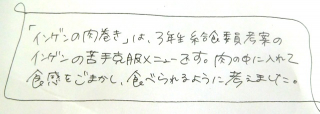 「インゲンの肉巻き」は、3年生給食委員考案の
インゲンの苦手克服メニューです。肉の中に入れて
食感をごまかし、食べられるように考えました。